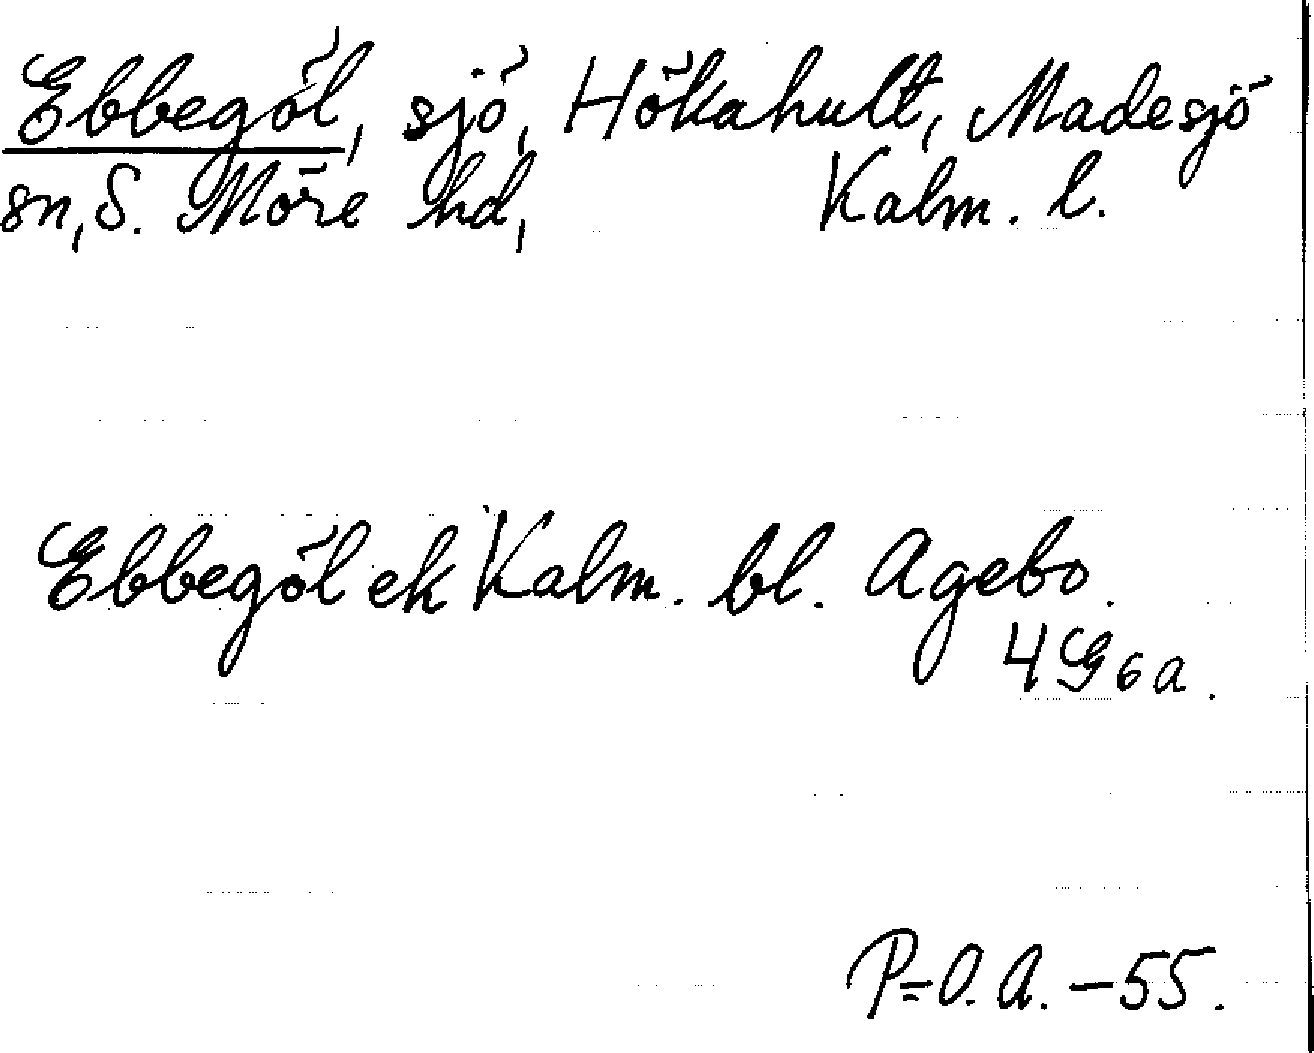 Ebbegöl, sjö, Hökahult, Madesjö
sn, S. Möre hd, Kalm. l.
Ebbegöl ek Kalm. bl. Agebo.
4G6a.
P=O.A. -55.